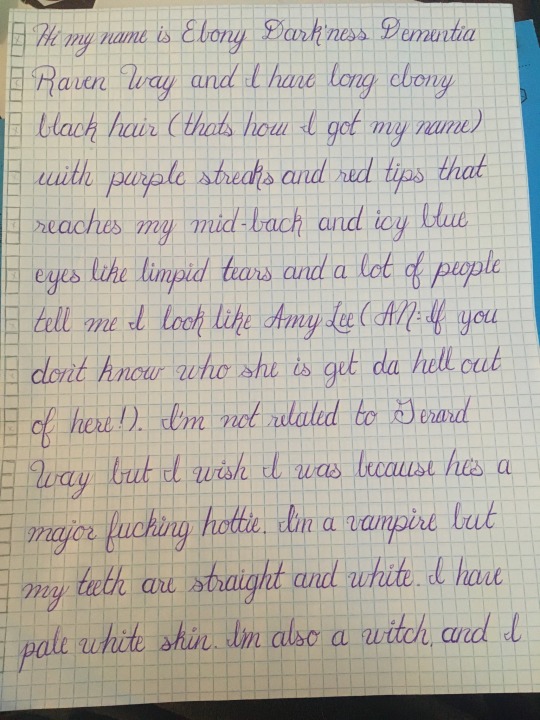 Hi my name is Ebony Dark'ness Dementia
Raven Way and I have long ebony
black hair (thats how I got my name)
with purple streaks and red tips that
reaches my mid-back and icy blue
eyes like limpid tears and a lot of people
tell me I look like Amy Lee (AN: If you
don't know who she is get da hell out
of here!). I'm not related to Gerard
Way but I wish I was because he's a
major fucking hottie. I'm a vampire but
my teeth are straight and white. I have
pale white skin. I'm also a witch, and I